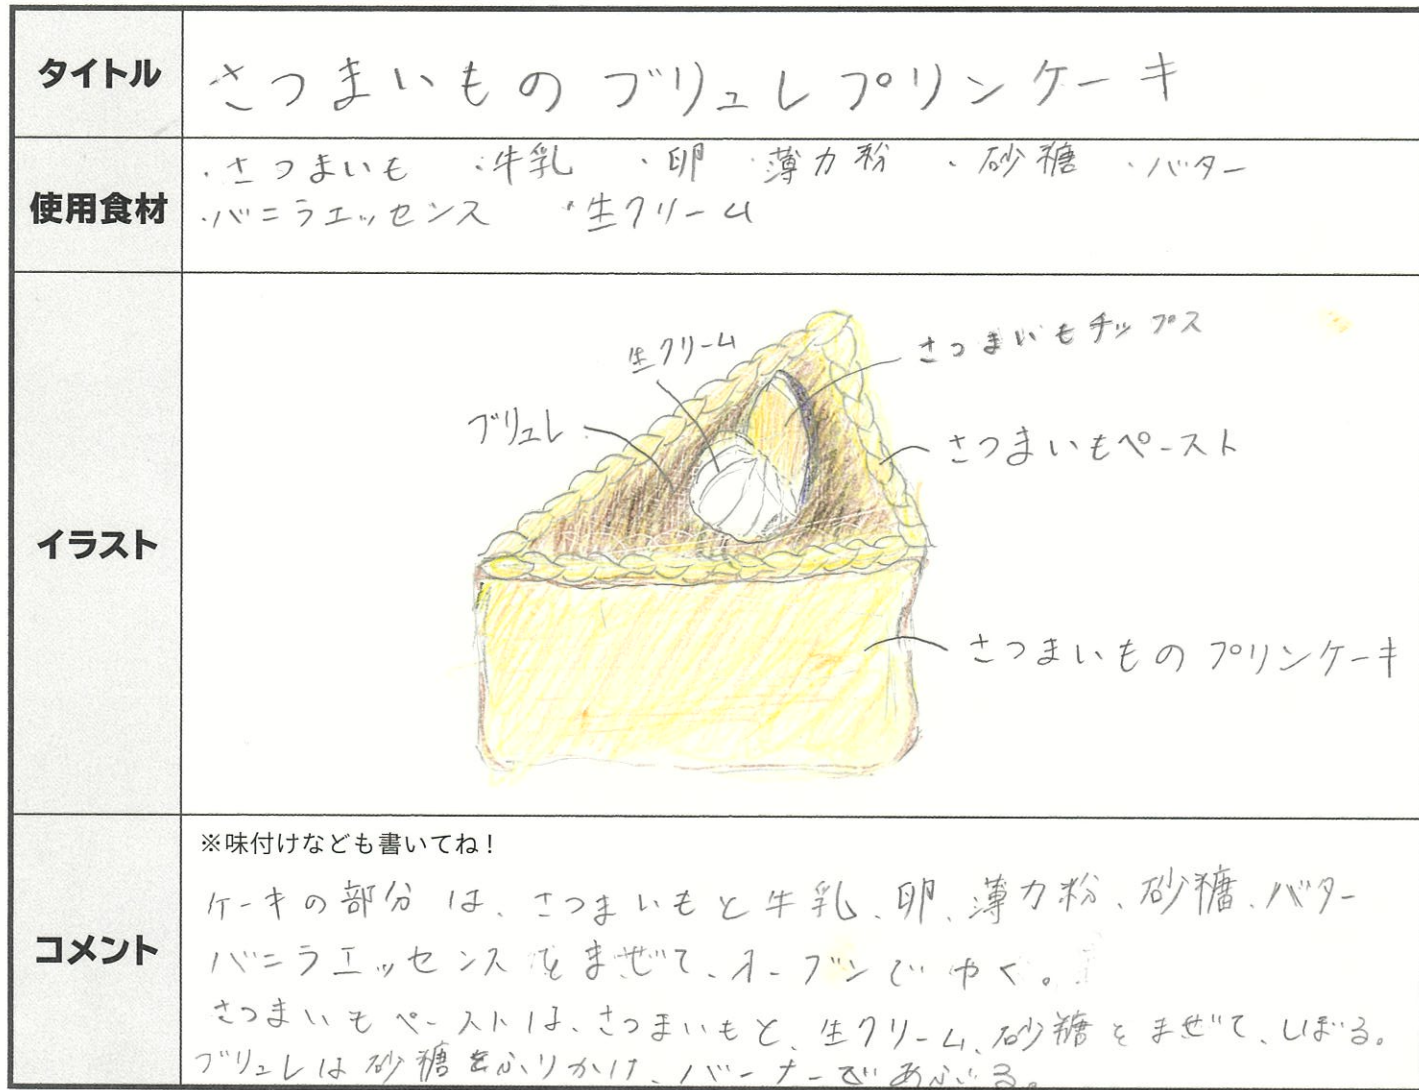 タイトル
さつまいものブリュレプリンケーキ
使用食材
・さつまいも ・牛乳 ・卵 ・薄力粉 ・砂糖 ・バター
・バニラエッセンス ・生クリーム
イラスト
生クリーム
さつまいもチップス
ブリュレ
さつまいもペースト
さつまいものプリンケーキ
コメント
※味付けなども書いてね!
ケーキの部分は、さつまいもと牛乳、卵、薄力粉、砂糖、バター
バニラエッセンスをまぜて、オーブンでやく。
さつまいもペーストは、さつまいもと、生クリーム、砂糖をまぜて、しぼる。
ブリュレは砂糖をふりかけ、バーナーであぶる。